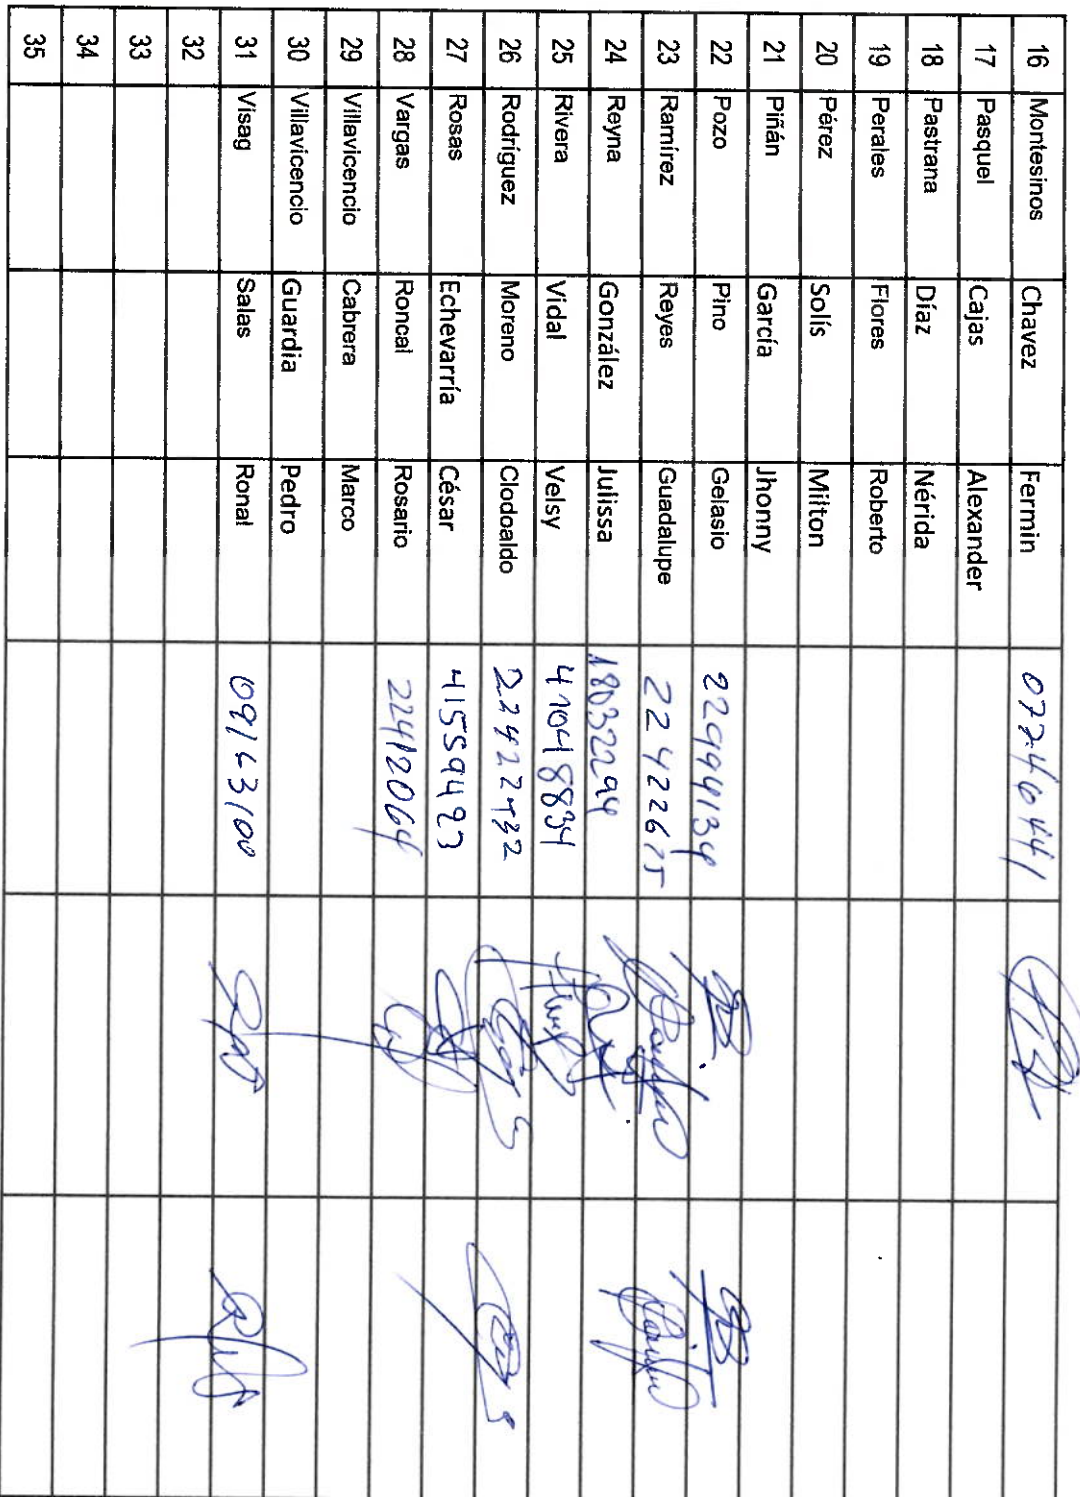 16 Montesinos Chavez Fermin 07246441
17 Pasquel Cajas Alexander
18 Pastrana Díaz Nérida
19 Perales Flores Roberto
20 Pérez Solís Milton
21 Piñán García Jhonny
22 Pozo Pino Gelasio
23 Ramírez Reyes Guadalupe 22422675
24 Reyna González Julissa 18032294
25 Rivera Vidal Velsy 41048834
26 Rodríguez Moreno Clodoaldo 22422432
27 Rosas Echevarría César 41559423
28 Vargas Roncal Rosario 22412064
29 Villavicencio Cabrera Marco
30 Villavicencio Guardia Pedro
31 Visag Salas Ronal 09163100
32
33
34
35